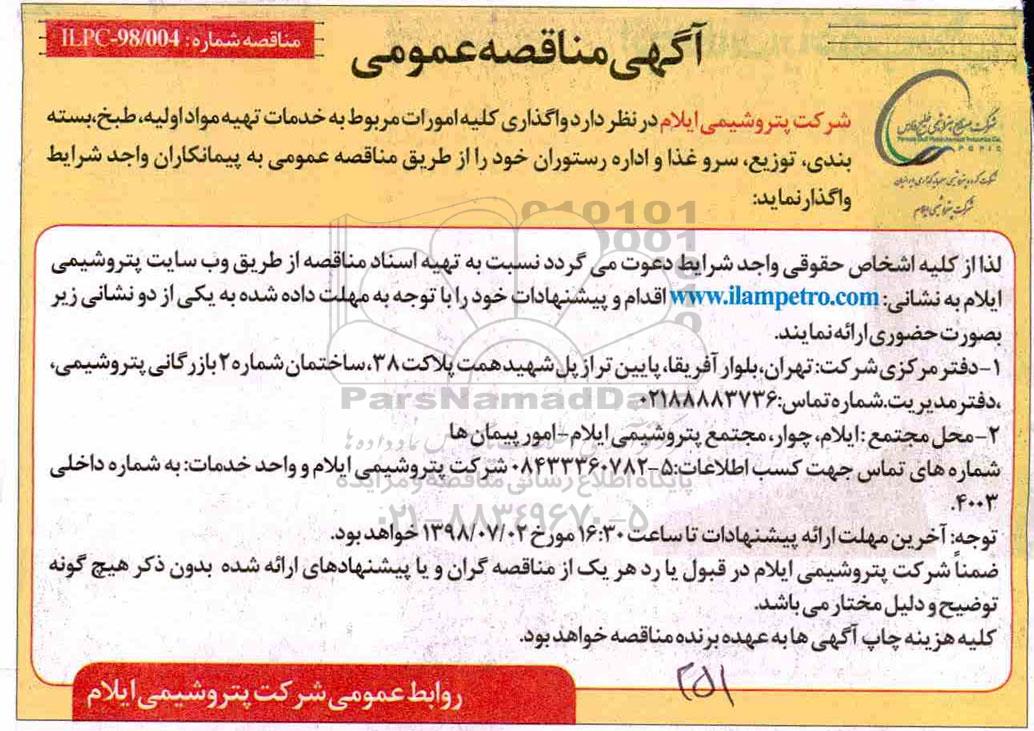 مناقصه شماره: ILPC-98/004
آگهی مناقصه عمومی
شرکت صنایع پتروشیمی خلیج فارس
Persian Gulf Petrochemical Industries Co.
PGPIC
شرکت پتروشیمی ایلام
شرکت پتروشیمی ایلام در نظر دارد واگذاری کلیه امورات مربوط به خدمات تهیه مواد اولیه، طبخ، بسته
بندی، توزیع، سرو غذا و اداره رستوران خود را از طریق مناقصه عمومی به پیمانکاران واجد شرایط
واگذار نماید:
لذا از کلیه اشخاص حقوقی واجد شرایط دعوت می گردد نسبت به تهیه اسناد مناقصه از طریق وب سایت پتروشیمی
ایلام به نشانی: www.ilampetro.com اقدام و پیشنهادات خود را با توجه به مهلت داده شده به یکی از دو نشانی زیر
بصورت حضوری ارائه نمایند.
۱-دفتر مرکزی شرکت: تهران، بلوار آفریقا، پایین تر از پل شهید همت پلاکت ۳۸، ساختمان شماره ۲ بازرگانی پتروشیمی،
،دفتر مدیریت. شماره تماس: ۰۲۱۸۸۸۸۳۷۳۶
۲-محل مجتمع: ایلام، چوار، مجتمع پتروشیمی ایلام-امور پیمان ها
شماره های تماس جهت کسب اطلاعات: ۵-۰۸۴۳۳۳۶۰۷۸۲ شرکت پتروشیمی ایلام و واحد خدمات: به شماره داخلی
۴۰۰۳.
توجه: آخرین مهلت ارائه پیشنهادات تا ساعت ۱۶:۳۰ مورخ ۱۳۹۸/۰۷/۰۲ خواهد بود.
ضمناً شرکت پتروشیمی ایلام در قبول یا رد هر یک از مناقصه گران و یا پیشنهادهای ارائه شده بدون ذکر هیچ گونه
توضیح و دلیل مختار می باشد.
کلیه هزینه چاپ آگهی ها به عهده برنده مناقصه خواهد بود.
روابط عمومی شرکت پتروشیمی ایلام
ParsNamadData
پایگاه اطلاع رسانی مناقصه و مزایده
۰۲۱-۸۸۳۴۹۶۷۰-۵